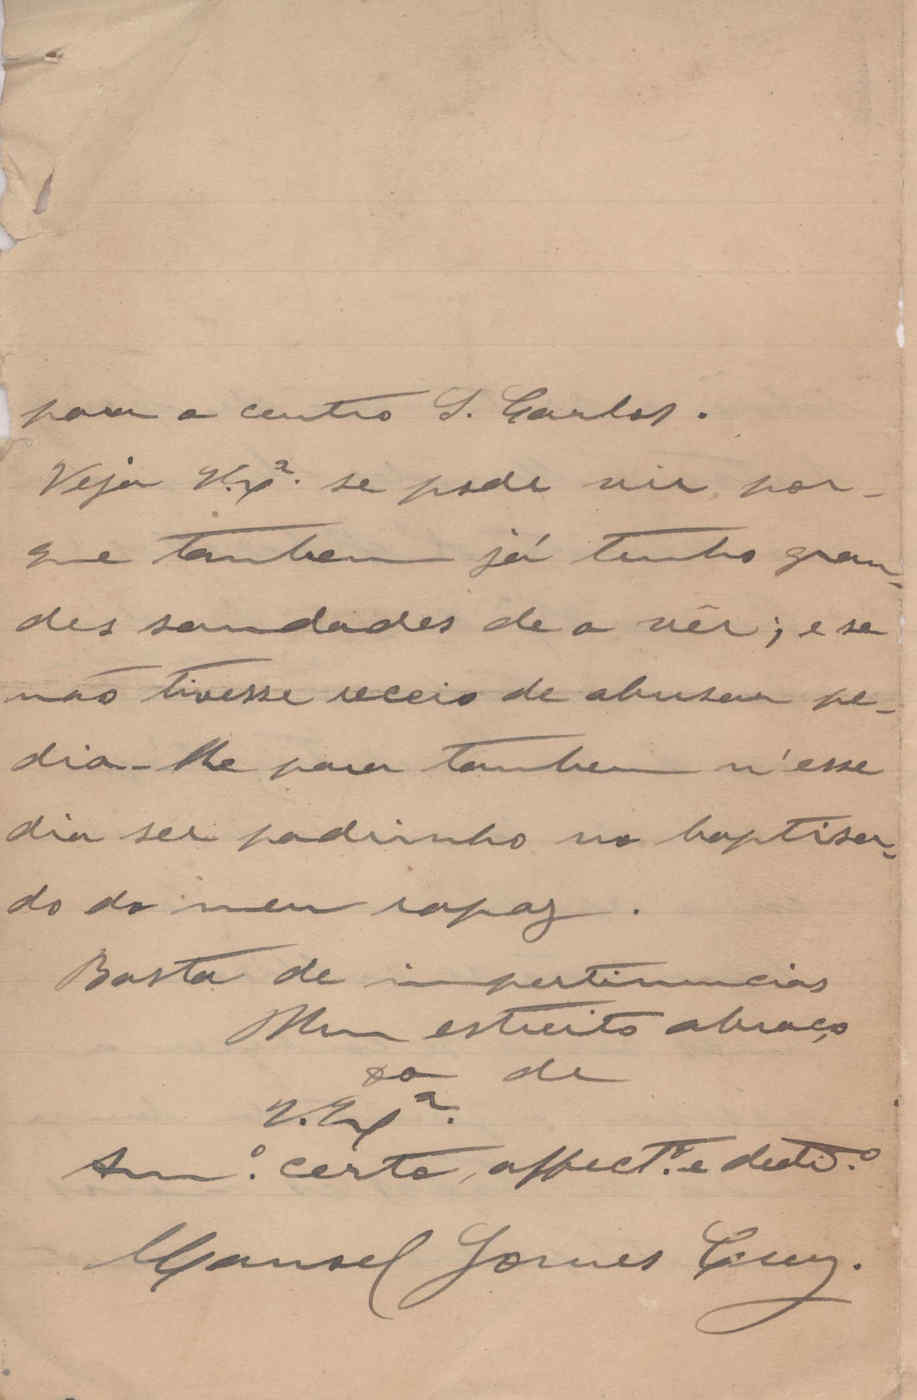 para o centro S. Carlos.
Veja V.Ex.ª se pode vir, por-
que tambem já tenho gran-
des saudades de o vêr; e se
não tivesse receio de abusar pe-
dia-lhe para tambem n'esse
dia ser padrinho no baptisa-
do do meu rapaz.
Basta de impertinencias
Um estreito abraço
de
V. Ex.ª
Am.º certo, affect.º e
Manoel Gomes Cruz.